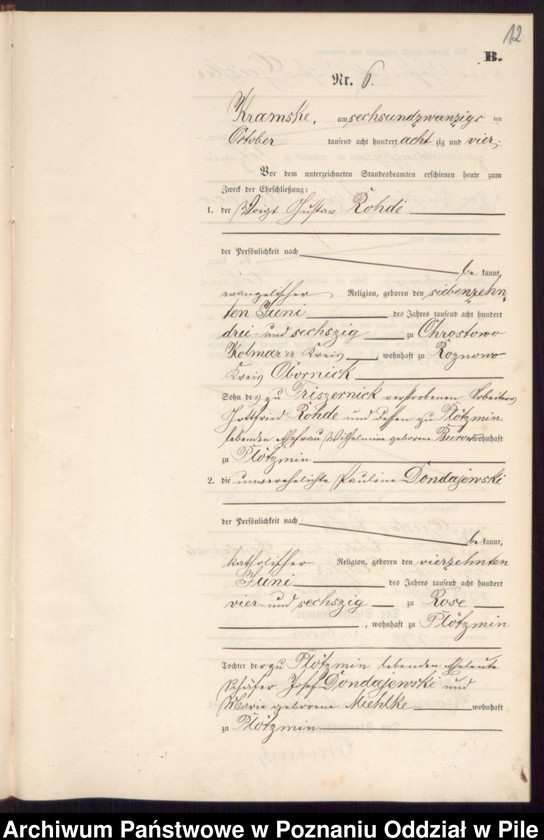 12
B.
Nr. 6.
Kramske, am sechsundzwanzigs ten
October tausend acht hundert acht zig und vier
Vor dem unterzeichneten Standesbeamten erschienen heute zum
Zweck der Eheschließung:
1. der Voigt Gustav Rohde
der Persönlichkeit nach
be kannt,
evangelischer Religion, geboren den siebenzehn
ten Juni des Jahres tausend acht hundert
drei und sechszig zu Chrostowo
Kolmar'er Kreis wohnhaft zu Roznowo
Kreis Obornick
Sohn des zu Triszernick verstorbenen Arbeiters
Gottfried Rohde und dessen zu Plötzmin
lebenden Ehefrau Wilhelmine geborene Burow wohnhaft
zu Plötzmin
2. die unverehelichte Pauline Dondajewski
der Persönlichkeit nach
be kannt,
katholischer Religion, geboren den vierzehnten
Juni des Jahres tausend acht hundert
vier und sechszig zu Rose
, wohnhaft zu Plötzmin
Tochter der zu Plötzmin lebenden Eheleute
Schäfer Josef Dondajewski und
Marie geborene Miehlke wohnhaft
zu Plötzmin
Archiwum Państwowe w Poznaniu Oddział w Pile